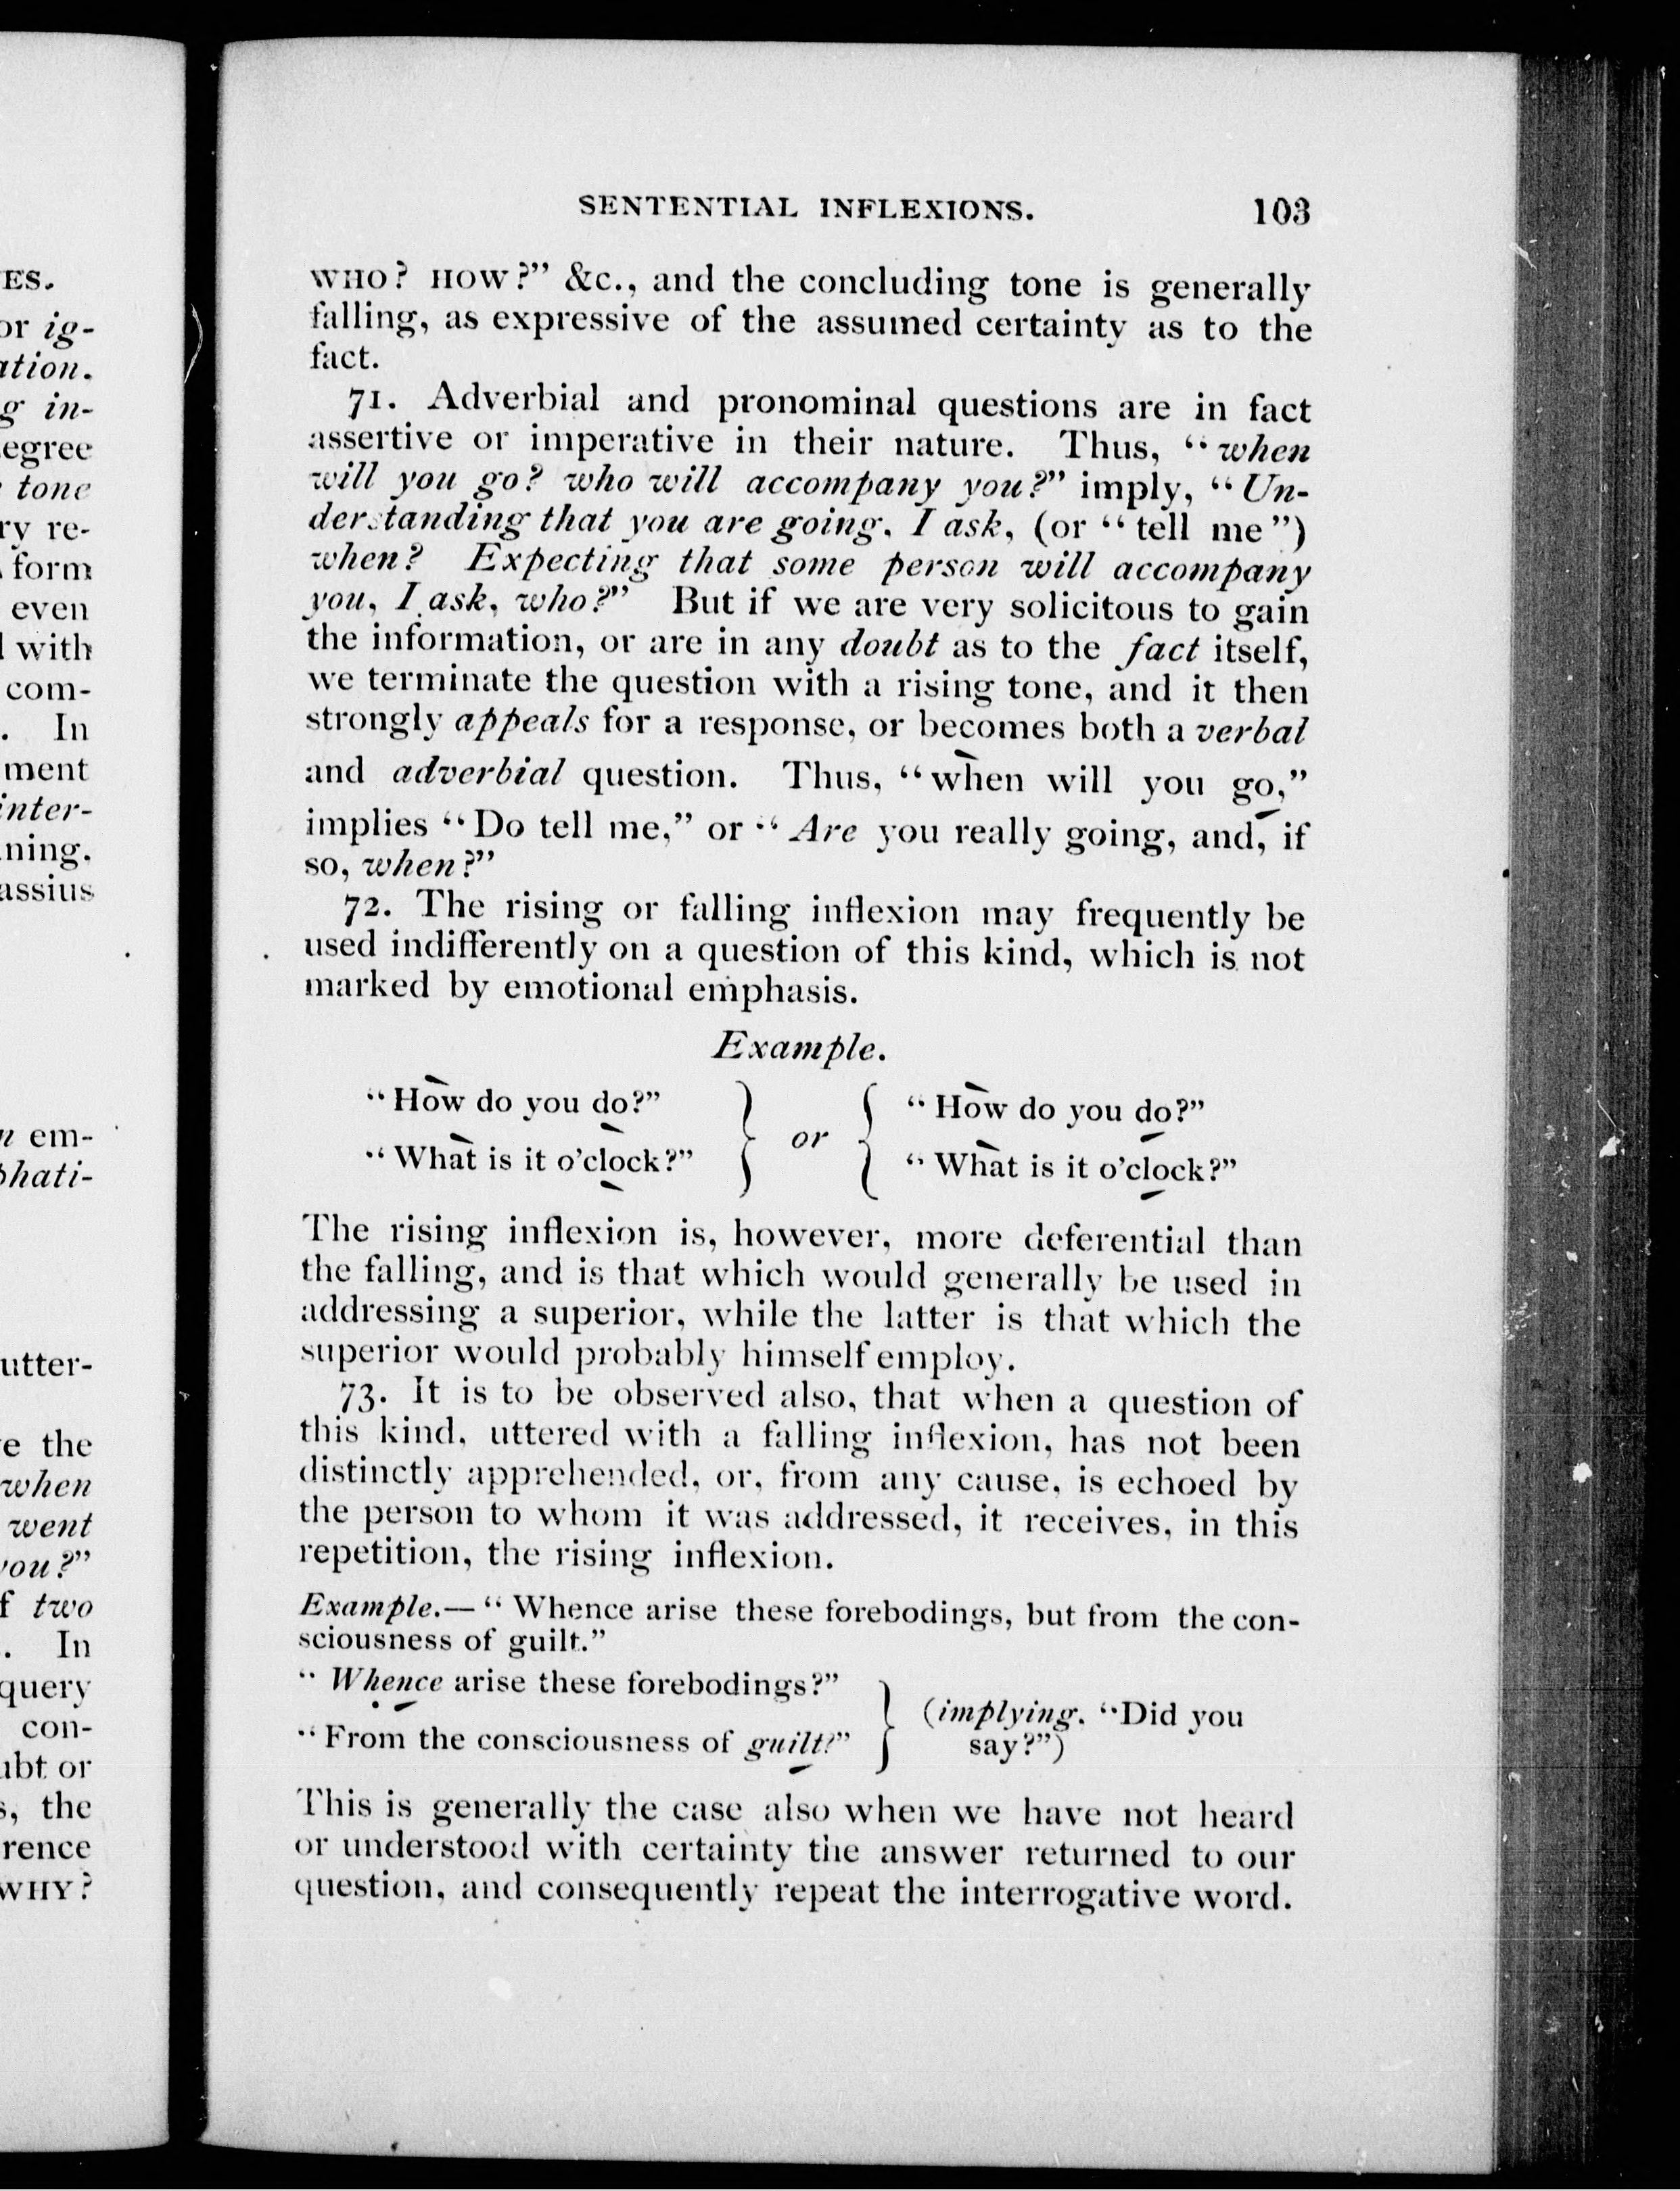 ES.
or ig-
ation.
g in-
egree
tone
ry re-
form
even
with
com-
. In
ment
inter-
ning.
assius
n em-
phati-
utter-
e the
when
went
you?”
f two
. In
query
con-
ubt or
s, the
rence
WHY?
SENTENTIAL INFLEXIONS. 103
WHO? HOW?” &c., and the concluding tone is generally
falling, as expressive of the assumed certainty as to the
fact.
71. Adverbial and pronominal questions are in fact
assertive or imperative in their nature. Thus, “when
will you go? who will accompany you?” imply, “Un-
derstanding that you are going, I ask, (or “tell me”)
when? Expecting that some person will accompany
you, I ask, who?” But if we are very solicitous to gain
the information, or are in any doubt as to the fact itself,
we terminate the question with a rising tone, and it then
strongly appeals for a response, or becomes both a verbal
and adverbial question. Thus, “when will you go,”
implies “Do tell me,” or “Are you really going, and, if
so, when?”
72. The rising or falling inflexion may frequently be
used indifferently on a question of this kind, which is not
marked by emotional emphasis.
Example.
“How do you do?” } or { “How do you do?”
“What is it o’clock?” “What is it o’clock?”
The rising inflexion is, however, more deferential than
the falling, and is that which would generally be used in
addressing a superior, while the latter is that which the
superior would probably himself employ.
73. It is to be observed also, that when a question of
this kind, uttered with a falling inflexion, has not been
distinctly apprehended, or, from any cause, is echoed by
the person to whom it was addressed, it receives, in this
repetition, the rising inflexion.
Example.—“Whence arise these forebodings, but from the con-
sciousness of guilt.”
“Whence arise these forebodings?” } (implying, “Did you
“From the consciousness of guilt?” say?”)
This is generally the case also when we have not heard
or understood with certainty the answer returned to our
question, and consequently repeat the interrogative word.